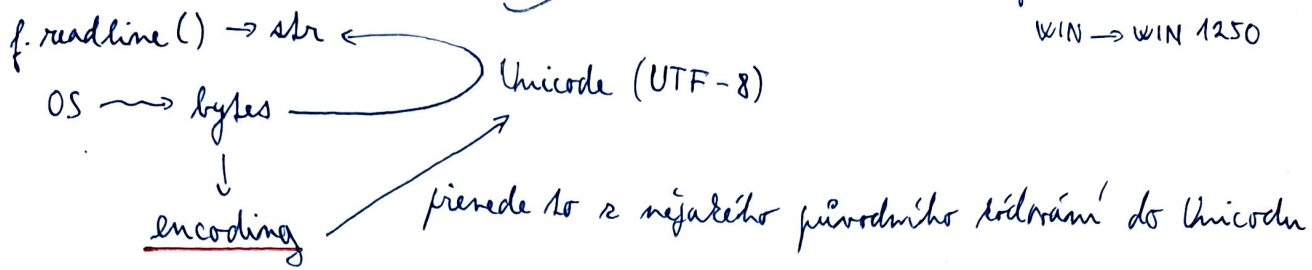 f.readline() → str ←
WIN → WIN 1250
OS ⇝ bytes
Unicode (UTF-8)
↓
encoding
převede to z nějakého původního kódování do Unicodu